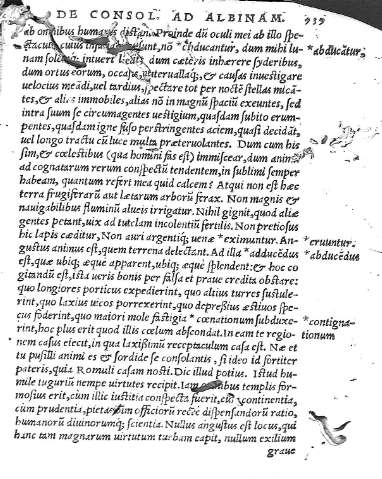 DE CONSOL. AD ALBINAM. 939
ab omnibus humanis distan. Proinde dũ oculi mei ab illo spe-
cuius nõ *ẽducantur, dum mihi lu- *abducãtur,
nam solemq; intueri liceat, dum cæteris inhærere syderibus,
dum ortus eorum, occasus, interuallaq;, & causas inuestigare
uelocius meãdi, uel tardius, spectare tot per nocte stellas micã-
tes, & alias immobiles, alias nõ in magnũ spaciũ exeuntes, sed
intra suum se circumagentes uestigium, quasdam subito erum-
pentes, quasdam igne fuso perstringentes aciem, quasi decidãt,
uel longo tractu cũ luce multa præteruolantes. Dum cum his
sim, & cœlestibus (qua homini fas est) immiscear, dum animũ
ad cognatarum rerum conspectũ tendentem, in sublimi semper
habeam, quantum refert mea quid calcem? Atqui non est hæc
terra frugiferarũ aut lætarum arborũ ferax. Non magnis &
nauigabilibus fluminũ alueis irrigatur. Nihil gignit, quod aliæ
gentes petant, uix ad tutelam incolentiũ fertilis. Non pretiosus
hic lapis cæditur, Non auri argentiq; uenæ *eximuntur. An- *eruuntur.
gustus animus est, quem terrena delectant. Ad illa *adducẽdus *abducẽdus
est, quæ ubiq; æque apparent, ubiq; æquè splendent: & hoc co
gitandũ est, ista ueris bonis per falsa et praue credita obstare:
quo longiores porticus expedierint, quo altius turres sustule-
rint, quo laxius uicos porrexerint, quo depressius æstiuos spe-
cus foderint, quo maiori mole fastigia *cœnationum subduxe- *contigna-
rint, hoc plus erit quod illis cœlum abscondat. In eam te regio- tionum
nem casus eiecit, in qua laxissimũ receptaculum casa est. Næ et
tu pusilli animi es & sordide se consolantis, si ideo id fortiter
pateris, quia Romuli casam nosti. Dic illud potius. Istud hu-
mile tugurium nempe uirtutes recipit. Iam omnibus templis for-
mosius erit, cum illic iustitia conspecta fuerit, cũ continentia,
cum prudentia, pietas, omnium officiorũ rectè dispensandorũ ratio,
humanorũ diuinorumq; scientia. Nullus angustus est locus, qui
hanc tam magnarum uirtutum turbam capit, nullum exilium
graue